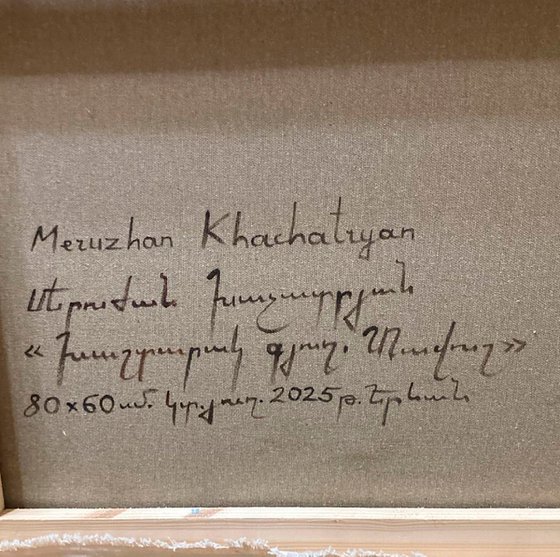 Meruzhan Khachatryan
Մերուժան Խաչատրյան
« Խաչքար գյուղ.
80x60 սմ. կտ.յուղ. 2025թ. Երևան